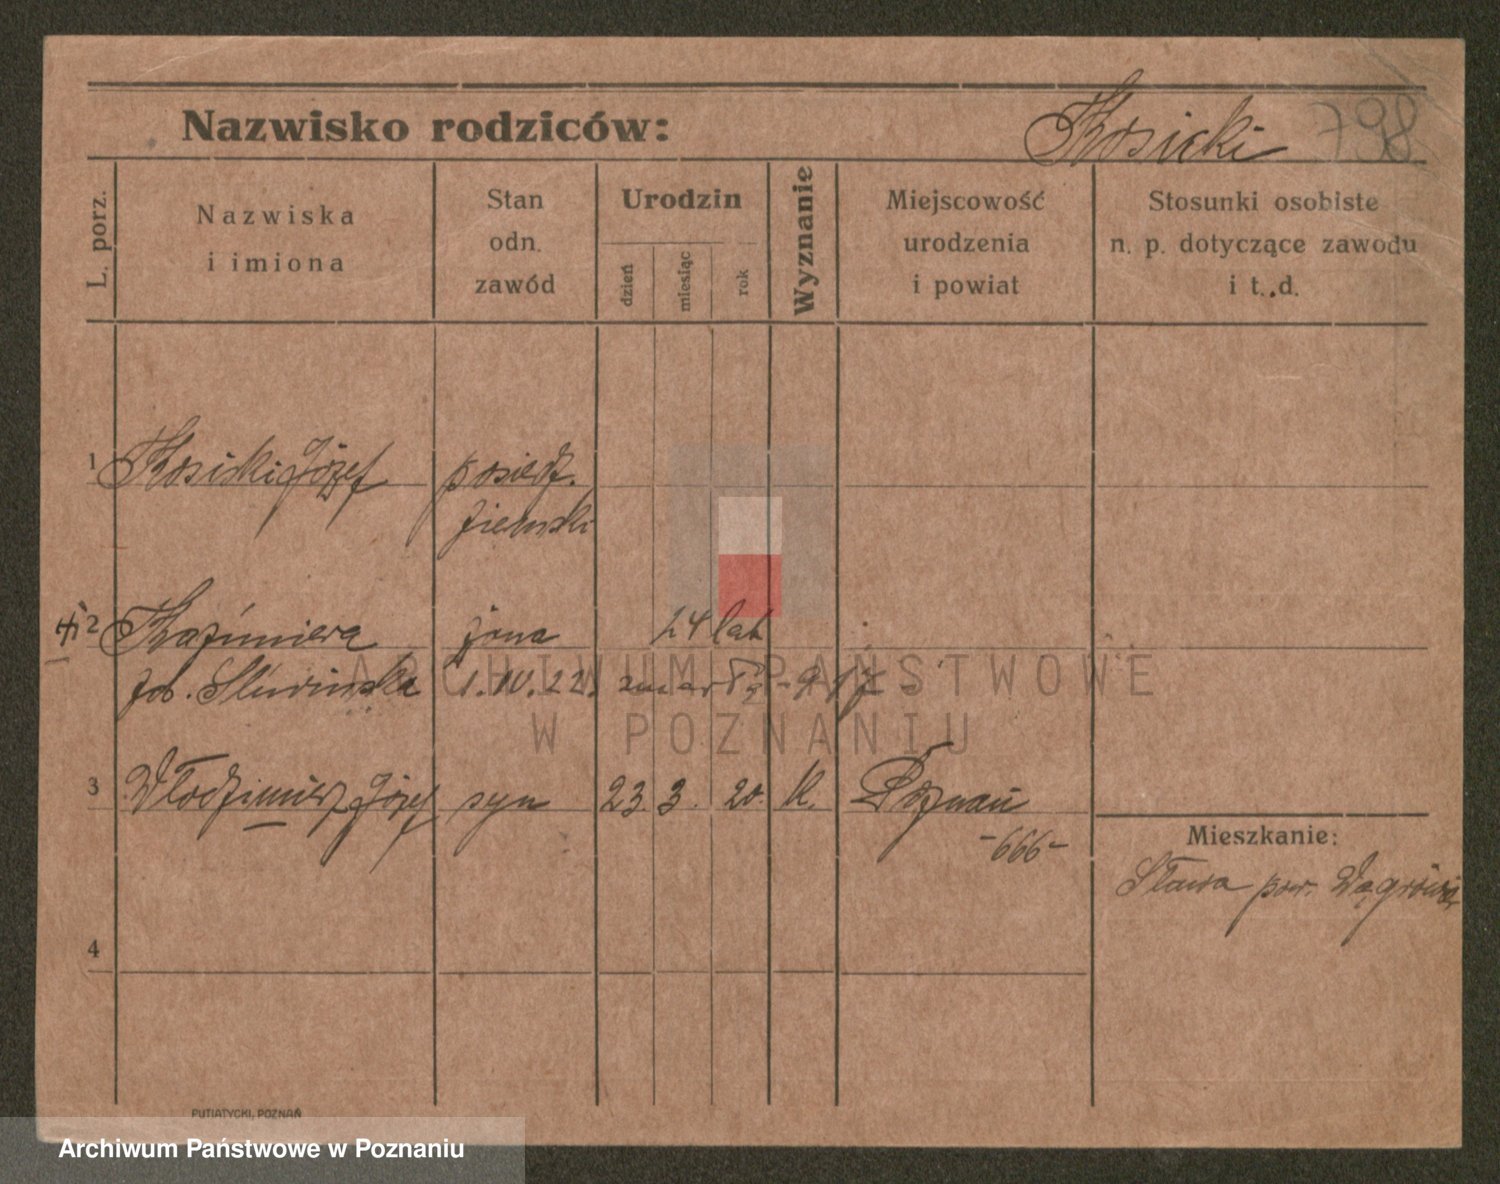 Nazwisko rodziców: Kosicki 798
L. porz.
Nazwiska
i imiona
Stan
odn.
zawód
Urodzin
dzień
miesiąc
rok
Wyznanie
Miejscowość
urodzenia
i powiat
Stosunki osobiste
n. p. dotyczące zawodu
i t. d.
1 Kosicki Józef posiedz.
ziemski
2 Kazimiera żona 24 lat
ur. Śliwińska 1. IV. 22.
ARCHIWUM PAŃSTWOWE
W POZNANIU
3 Włodzimierz Józef syn 23 3. 20. K. Poznań
-666-
Mieszkanie:
Sława pow. Wągrowiec
4
PUTIATYCKI, POZNAŃ
Archiwum Państwowe w Poznaniu